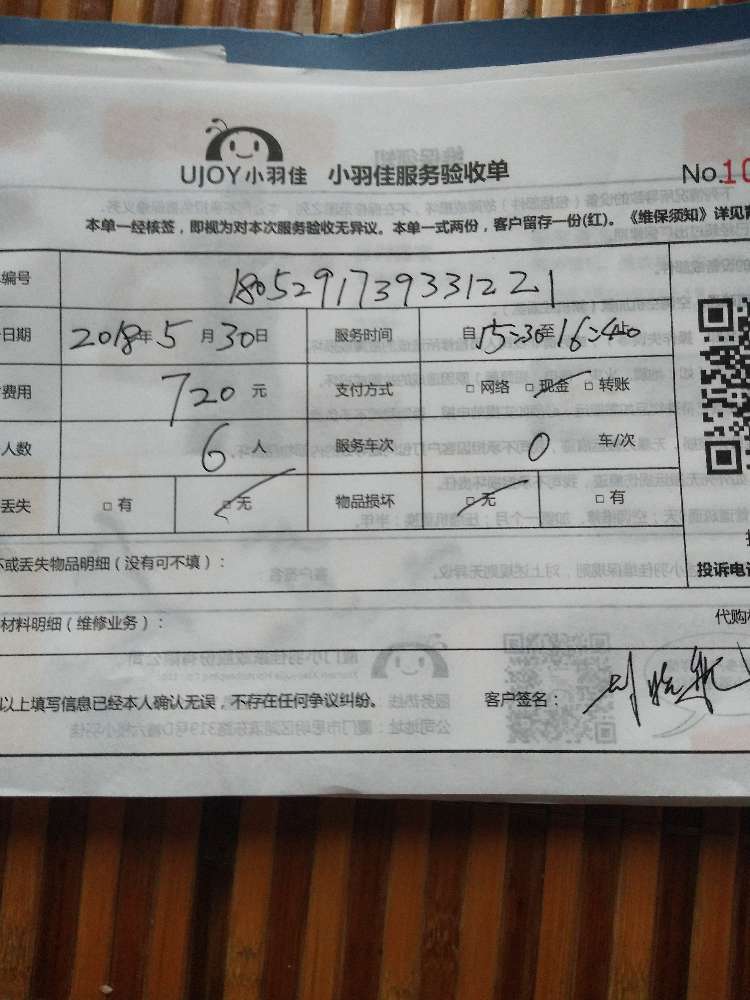 UJOY小羽佳 小羽佳服务验收单 No.10
本单一经核签，即视为对本次服务验收无异议。本单一式两份，客户留存一份(红)。《维保须知》详见背
编号 18052917393312 21
日期 2018年5月30日 服务时间 自15:30至16:40
费用 720元 支付方式 □网络 □现金 □转账
人数 6人 服务车次 0 车/次
丢失 □有 □无 物品损坏 □无 □有
坏或丢失物品明细（没有可不填）：
投诉电话
材料明细（维修业务）：
代购
以上填写信息已经本人确认无误，不存在任何争议纠纷。 客户签名：